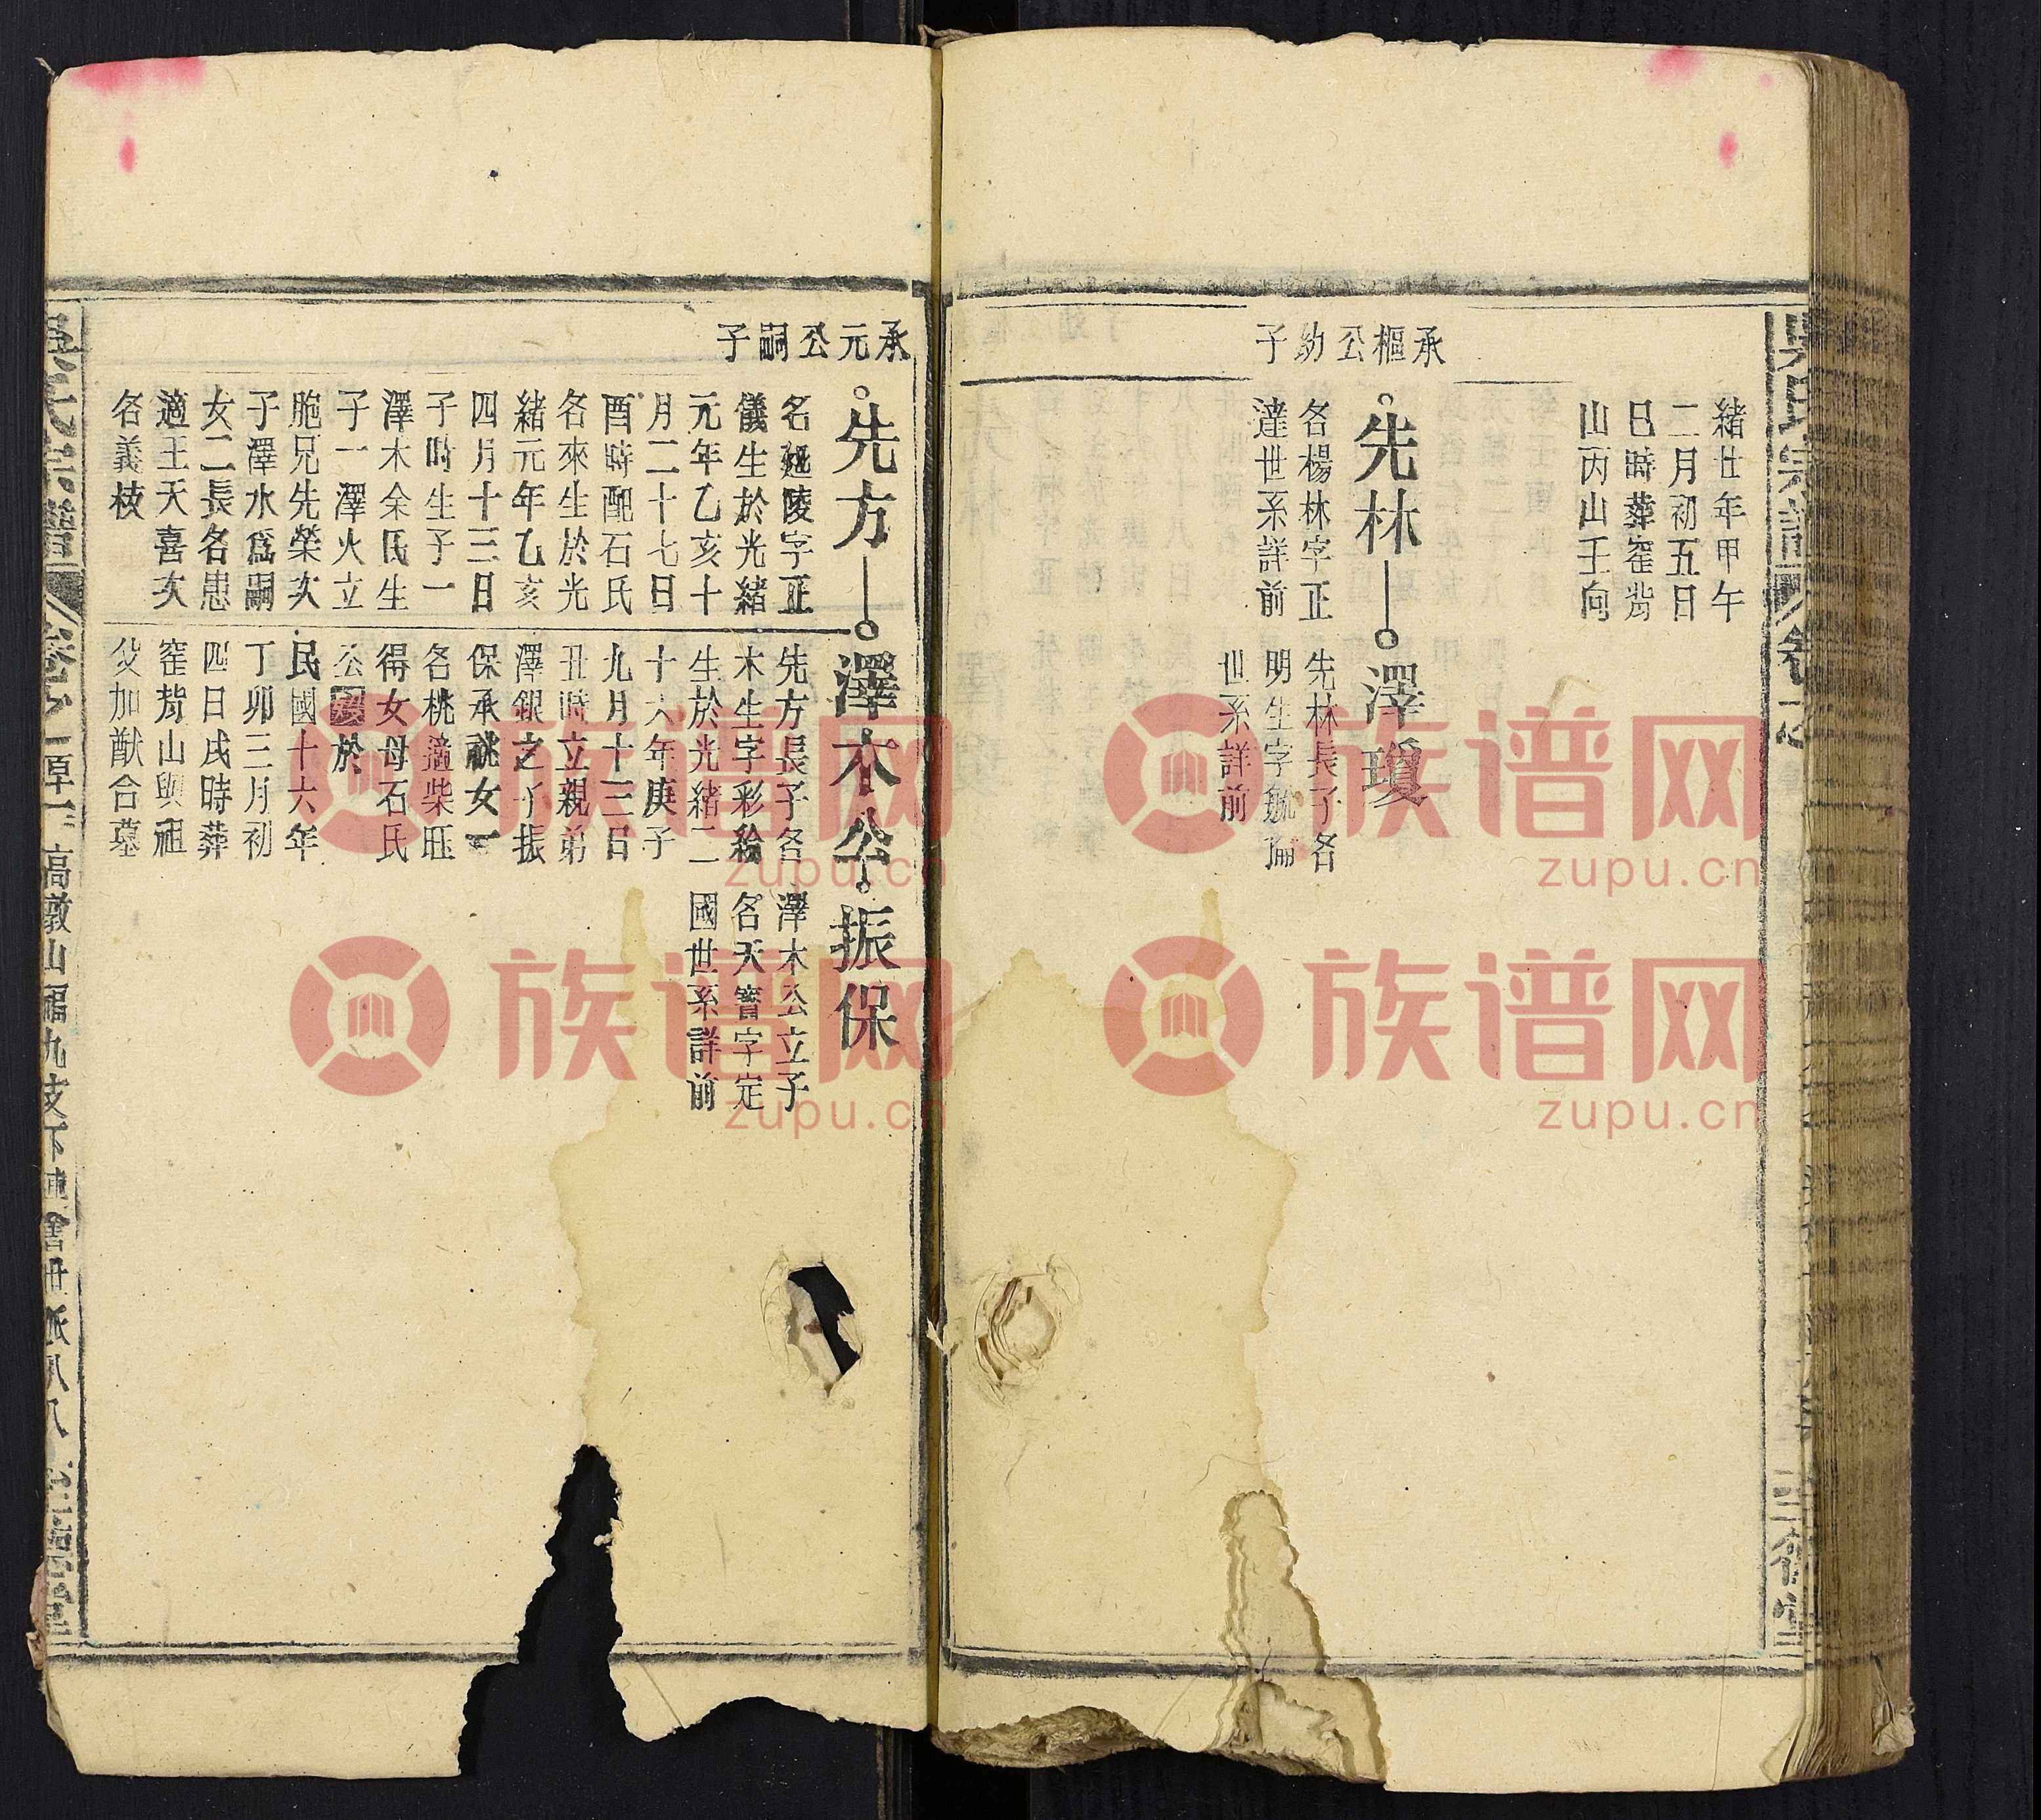 緒廿年甲午
二月初五日
巳時葬窑背
山丙山壬向
承樞公幼子
先林
名楊林字正
達世系詳前
澤瓊
先林長子名
明生字毓倫
世系詳前
承元公嗣子
先方
名延陵字正
儀生於光緒
元年乙亥十
月二十七日
酉時配石氏
名來生於光
緒元年乙亥
四月十三日
子時生子一
澤木余氏生
子一澤火立
胞兄先榮次
子澤水為嗣
女二長名患
適王天喜次
名義枝
澤木公
先方長子名
木生字彩繪
生於光緒二
十六年庚子
九月十三日
丑時立親弟
澤銀之子振
保承祧女一
名桃適柴旺
得女母石氏
公歿於
民國十六年
丁卯三月初
四日戌時葬
窑背山與祖
父加猷合墓
振保
澤木公立子
名天寶字定
國世系詳前
吳氏宗譜
高墩山福九支下
族谱网
zupu.cn
族谱网
zupu.cn
族谱网
zupu.cn
族谱网
zupu.cn